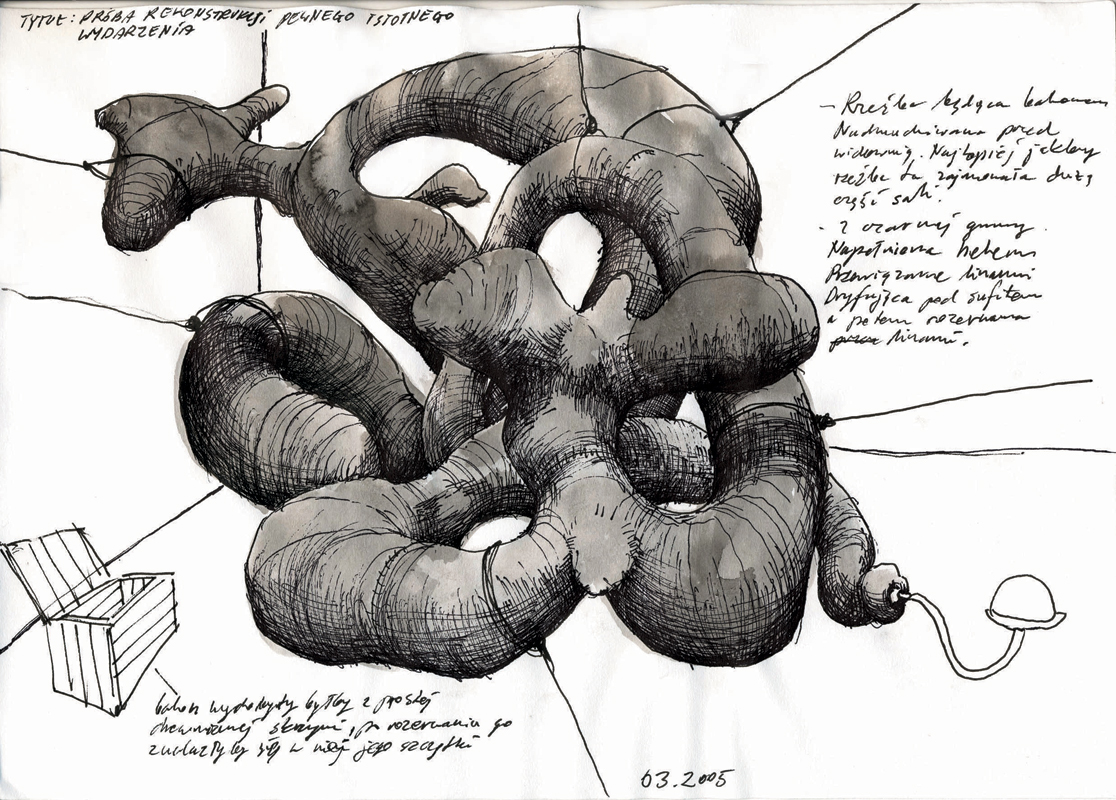 TYTUŁ: PRÓBA REKONSTRUKCJI PEWNEGO ISTOTNEGO
WYDARZENIA
- Rzeźba będąca balonem
Nadmuchiwana przed
widownią. Najlepiej jakby
rzeźba ta zajmowała dużą
część sali.
- z czarnej gumy.
Napełniona helem
Przewiązana linami
Dryfująca pod sufitem
a potem rozerwana
przez linami.
balon wydobyty byłby z prostej
drewnianej skrzyni, po rozerwaniu go
znalazłyby się w niej jego szczątki
03.2005